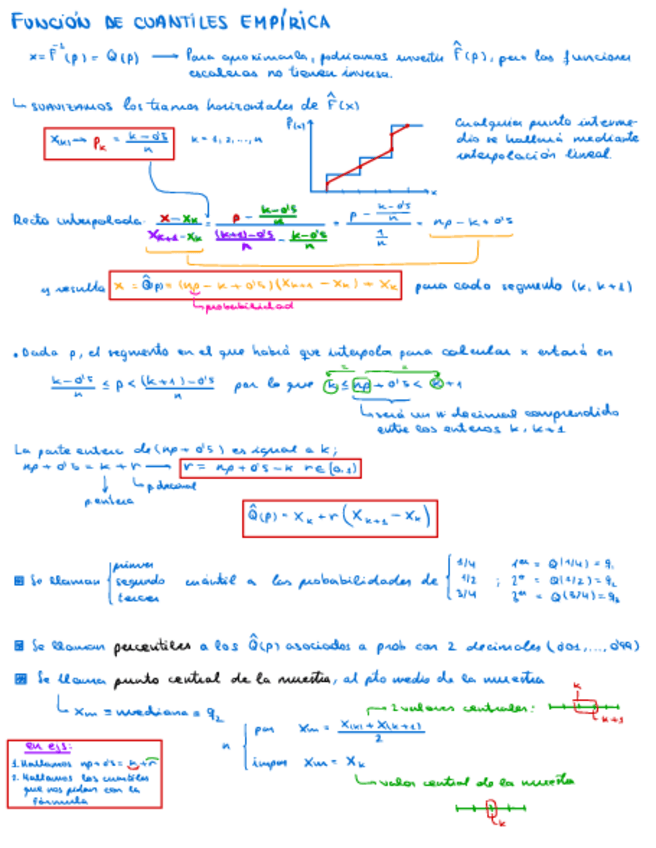 FUNCIÓN DE CUANTILES EMPÍRICA
x = F⁻¹(p) = Q(p) → Para aproximarla, podríamos invertir F̂(p), pero las funciones
escaleras no tienen inversa.
↳ SUAVIZAMOS los tramos horizontales de F̂(x)
X(k) → Pk = (k-0'5)/n   k = 1, 2, ..., n
F̂(x)
x
Cualquier punto interme-
dio se hallará mediante
interpolación lineal
Recta interpolada: (x - xk)/(xk+1 - xk) = (p - (k-0'5)/n)/(((k+1)-0'5)/n - (k-0'5)/n) = (p - (k-0'5)/n)/(1/n) = np - k + 0'5
y resulta x = Q̂(p) = (np - k + 0'5)(xk+1 - xk) + xk para cada segmento (k, k+1)
↳ probabilidad
• Dada p, el segmento en el que habrá que interpola para calcular x estará en
(k-0'5)/n ≤ p < ((k+1)-0'5)/n por lo que k ≤ np + 0'5 < k + 1
↳ será un nº decimal comprendido
entre los enteros k, k+1
La parte entera de (np + 0'5) es igual a k;
np + 0'5 = k + r → r = np + 0'5 - k   r ∈ [0, 1)
↳ p decimal
p entera
Q̂(p) = Xk + r (Xk+1 - Xk)
Se llaman { primer segundo tercer cuántil a las probabilidades de { 1/4 1/2 3/4 ; 1er = Q(1/4) = q1 2º = Q(1/2) = q2 3er = Q(3/4) = q3
Se llaman percentiles a los Q̂(p) asociados a prob con 2 decimales (0'01, ..., 0'99)
Se llama punto central de la muestra, al pto medio de la muestra
↳ xm = mediana = q2
→ 2 valores centrales:
k
k+1
n { par   xm = (X(k) + X(k+1))/2
impar   xm = Xk
↳ valor central de la muestra
k
en ejs:
1. Hallamos np + 0'5 = k + r
2. Hallamos los cuantiles
que nos pidan con la
fórmula